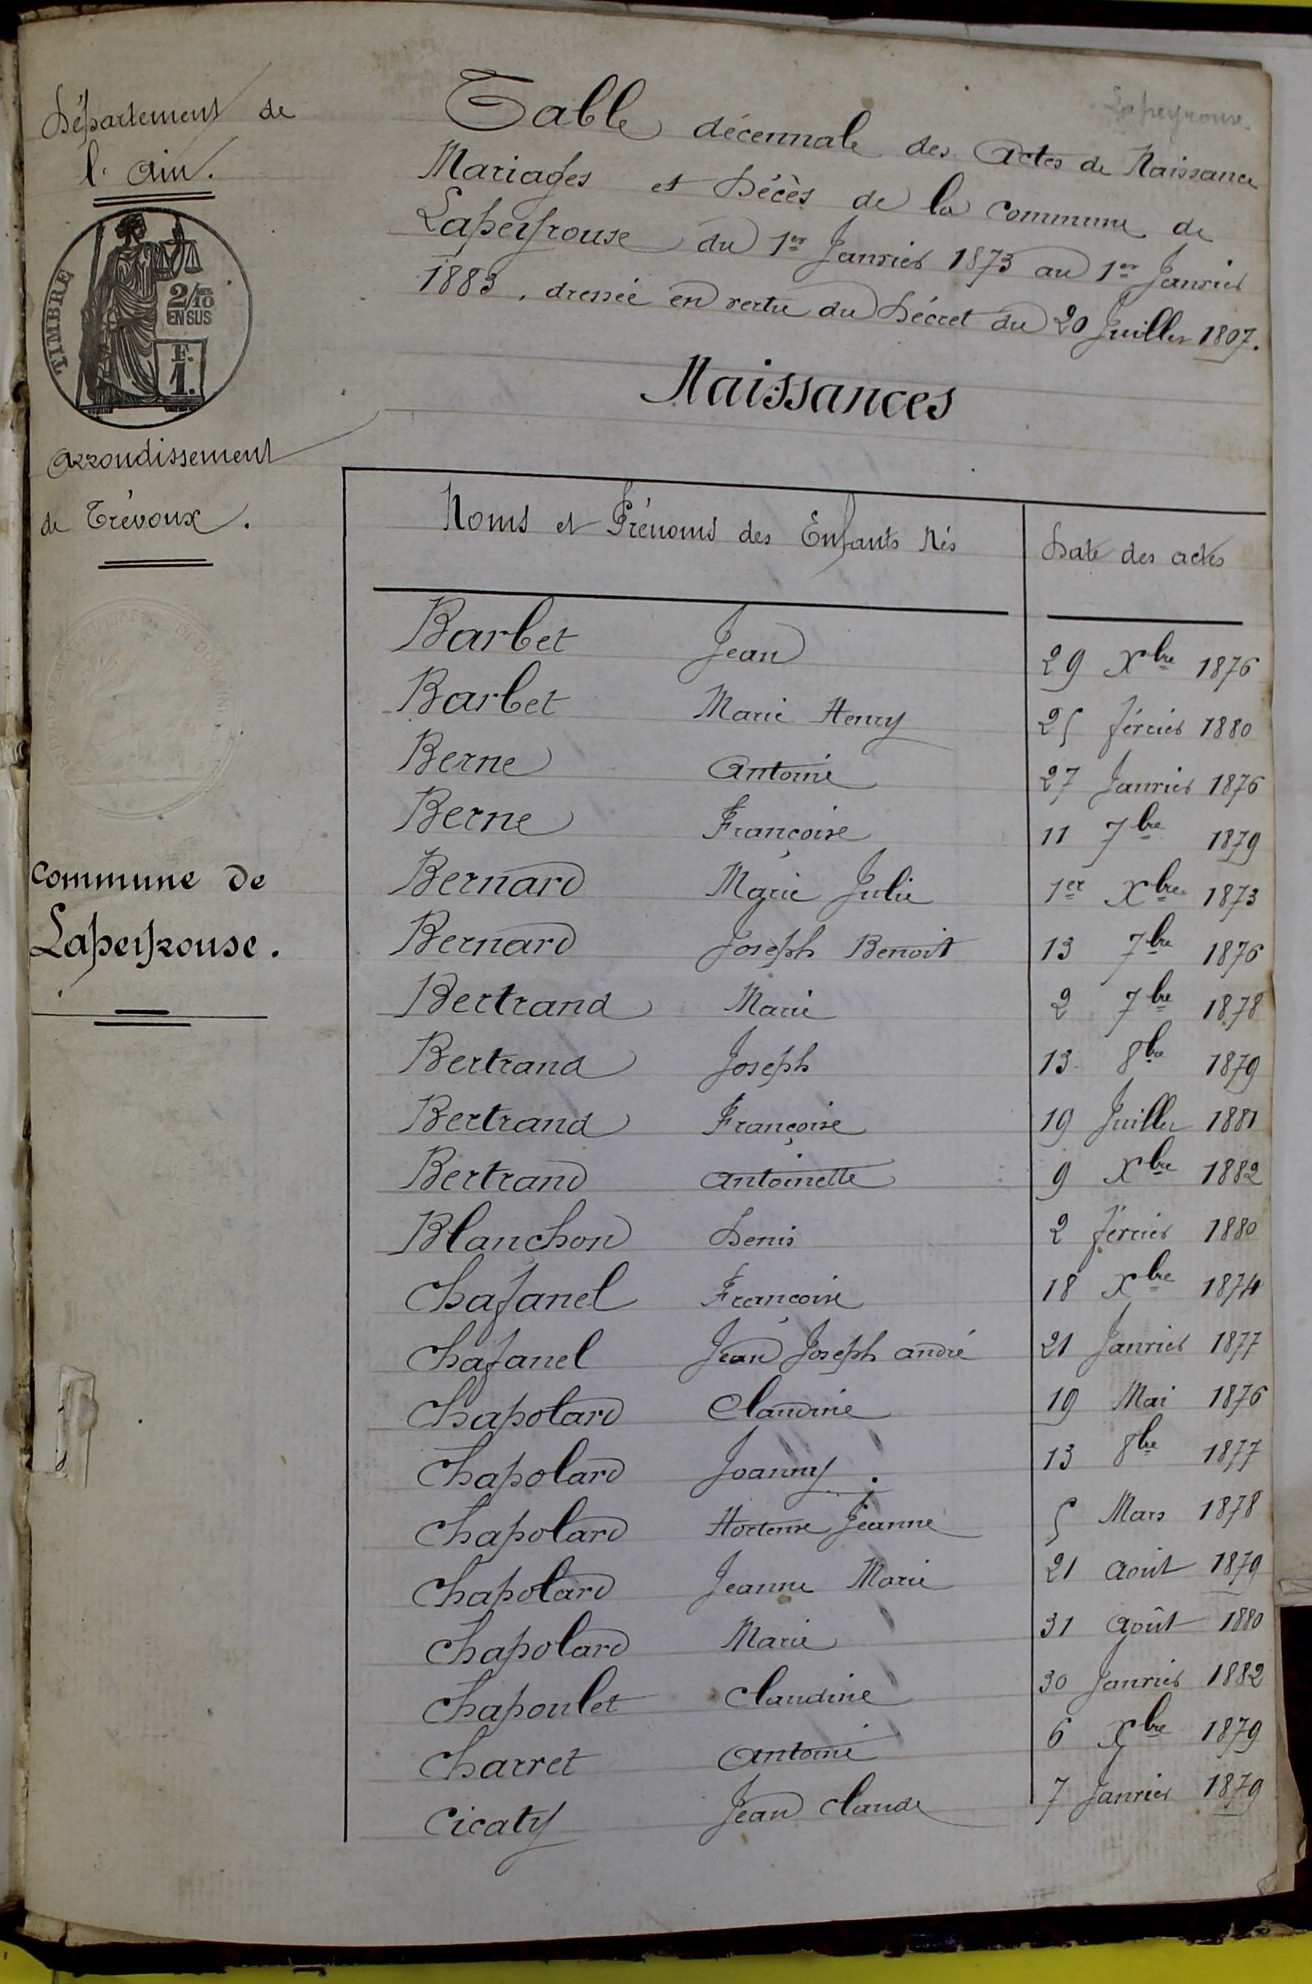 Lapeyrouse.
Département de
l'Ain.
TIMBRE
2/10
EN SUS
F.
1.
Arrondissement
de Trévoux.
Commune de
Lapeyrouse.
Table décennale des Actes de Naissance
Mariages et Décès de la commune de
Lapeyrouse du 1er Janvier 1873 au 1er Janvier
1883, dressée en vertu du Décret du 20 Juillet 1807.
Naissances
Noms et Prénoms des Enfants Nés Date des actes
Barbet Jean 29 Xbre 1876
Barbet Marie Henry 25 février 1880
Berne Antoine 27 Janvier 1876
Berne Françoise 11 7bre 1879
Bernard Marie Julie 1er Xbre 1873
Bernard Joseph Benoit 13 7bre 1876
Bertrand Marie 2 7bre 1878
Bertrand Joseph 13 8bre 1879
Bertrand Françoise 19 Juillet 1881
Bertrand Antoinette 9 Xbre 1882
Blanchon Denis 2 février 1880
Chafanel Françoise 18 Xbre 1874
Chafanel Jean Joseph André 21 Janvier 1877
Chapolard Claudine 19 Mai 1876
Chapolard Joanny 13 8bre 1877
Chapolard Hortense Jeanne 5 Mars 1878
Chapolard Jeanne Marie 21 Août 1879
Chapolard Marie 31 Août 1880
Chapoulet Claudine 30 Janvier 1882
Charret Antoine 6 Xbre 1879
Cicaty Jean Claude 7 Janvier 1879